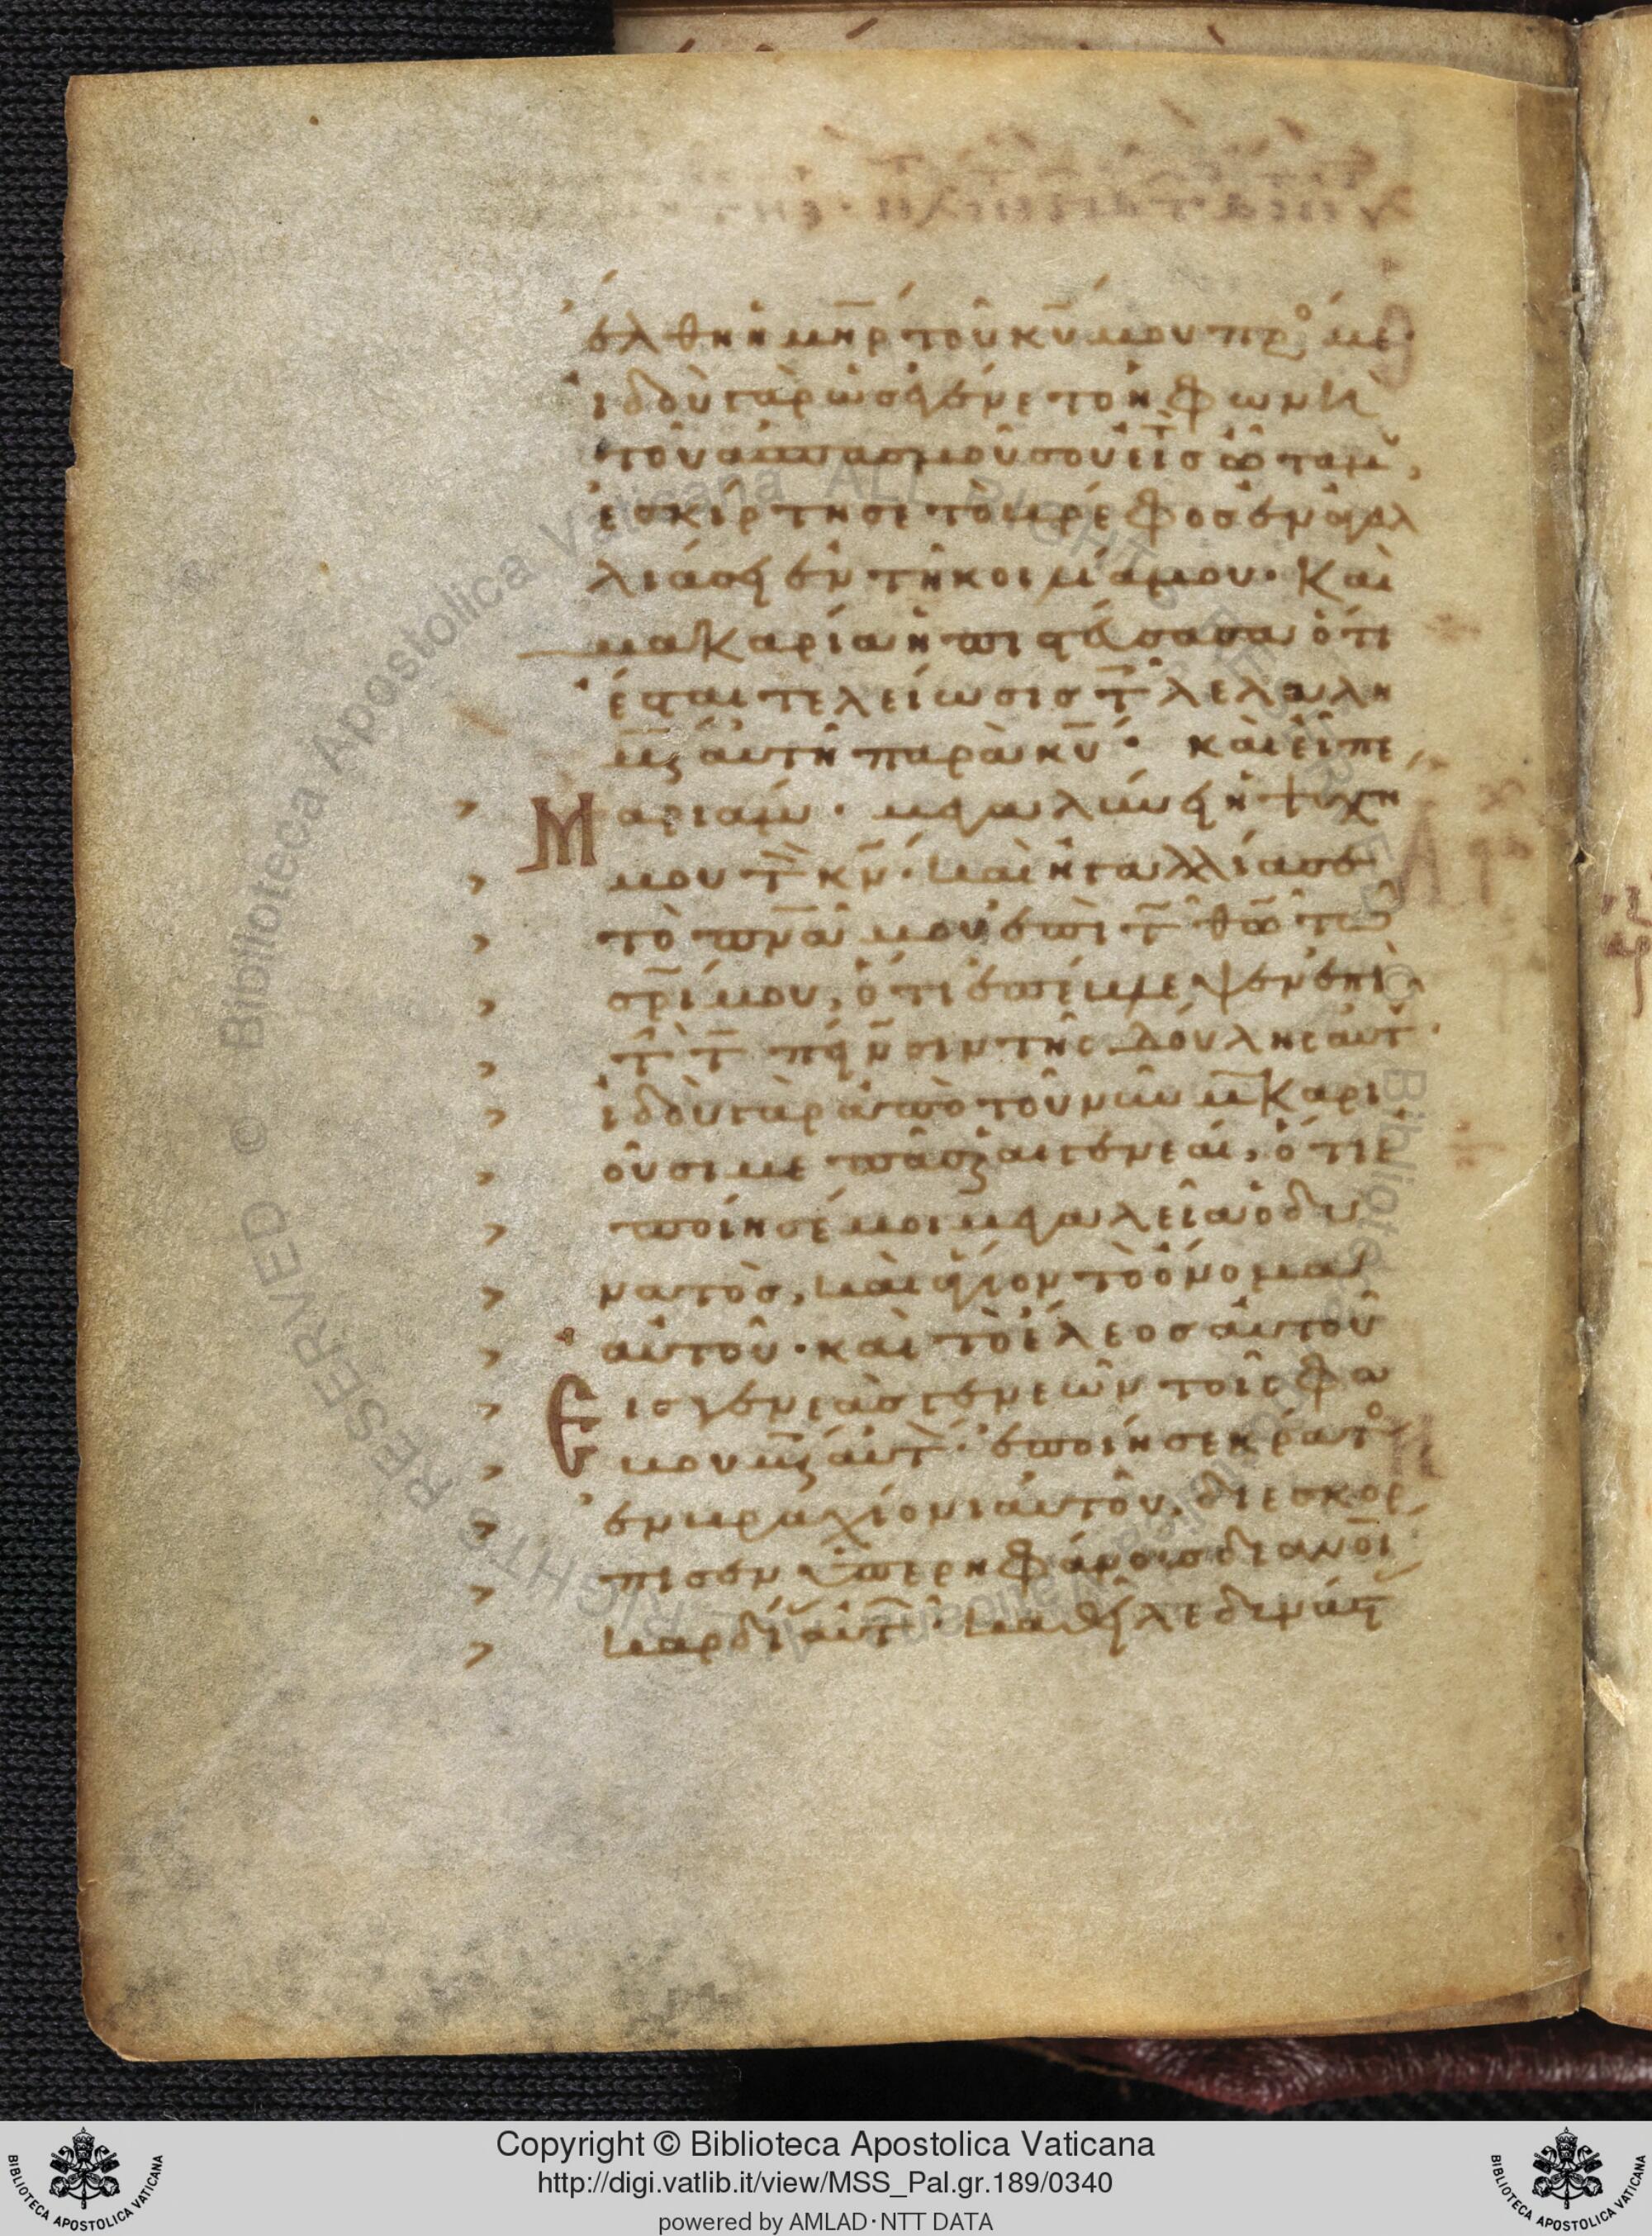 ἔλθη ἡ μη̅ρ τοῦ κυ̅ μου πρ̥ὸ με·
ἰδοὺ γὰρ ὡς ἐγένετο ἡ φωνὴ
τοῦ ἀσπασμοῦ σου εἰς τ̀ ὦτα μου,
ἐσκίρτησε τὸ βρέφος ἐν ἀγαλ
λιάσει ἐν τῇ κοιλία μου· Καὶ
μακαρία ἡ πιστεύσασα ὅτι
ἔσται τελείωσις τ̅ λελαλη
μ̅ς αὐτῆ παρὰ κυ̅· καὶ εἶπε
Μαριαμ· μεγαλύνει ἡ ψυχη
μου τ̅ κν̅· καὶ ἠγαλλίασε
τὸ πνα̅ μου ἐπὶ τ̅ θω̅ τῶ
σρ̅ί μου, ὅτι ἐπέμβλεψεν ἐπὶ
τ̅ ταπείνωσιν τῆς δούλης αὐτ
ἰδοὺ γὰρ ἀπὸ τοῦ νῦν μ̅καρι
οῦσι με πᾶσαι αἱ γενεαί, ὅτι ἐ
ποίησέ μοι μεγαλεῖα ὁ δυ
νατὸς, καὶ ἅγιον τὸ ὄνομα
αὐτοῦ· καὶ τὸ ἔλεος αὐτοῦ
Εἰς γενεὰς γενεῶν τοῖς φο
βουμ̅ς αὐτ̀· ἐποίησε κράτο
ἐν βραχίονι αὐτοῦ, διεσκόρ
πισεν ὑπερηφάνους διανοί
καρδί αὐτ̅· καθεῖλε δυνάστ
Copyright © Biblioteca Apostolica Vaticana
http://digi.vatlib.it/view/MSS_Pal.gr.189/0340
powered by AMLAD·NTT DATA